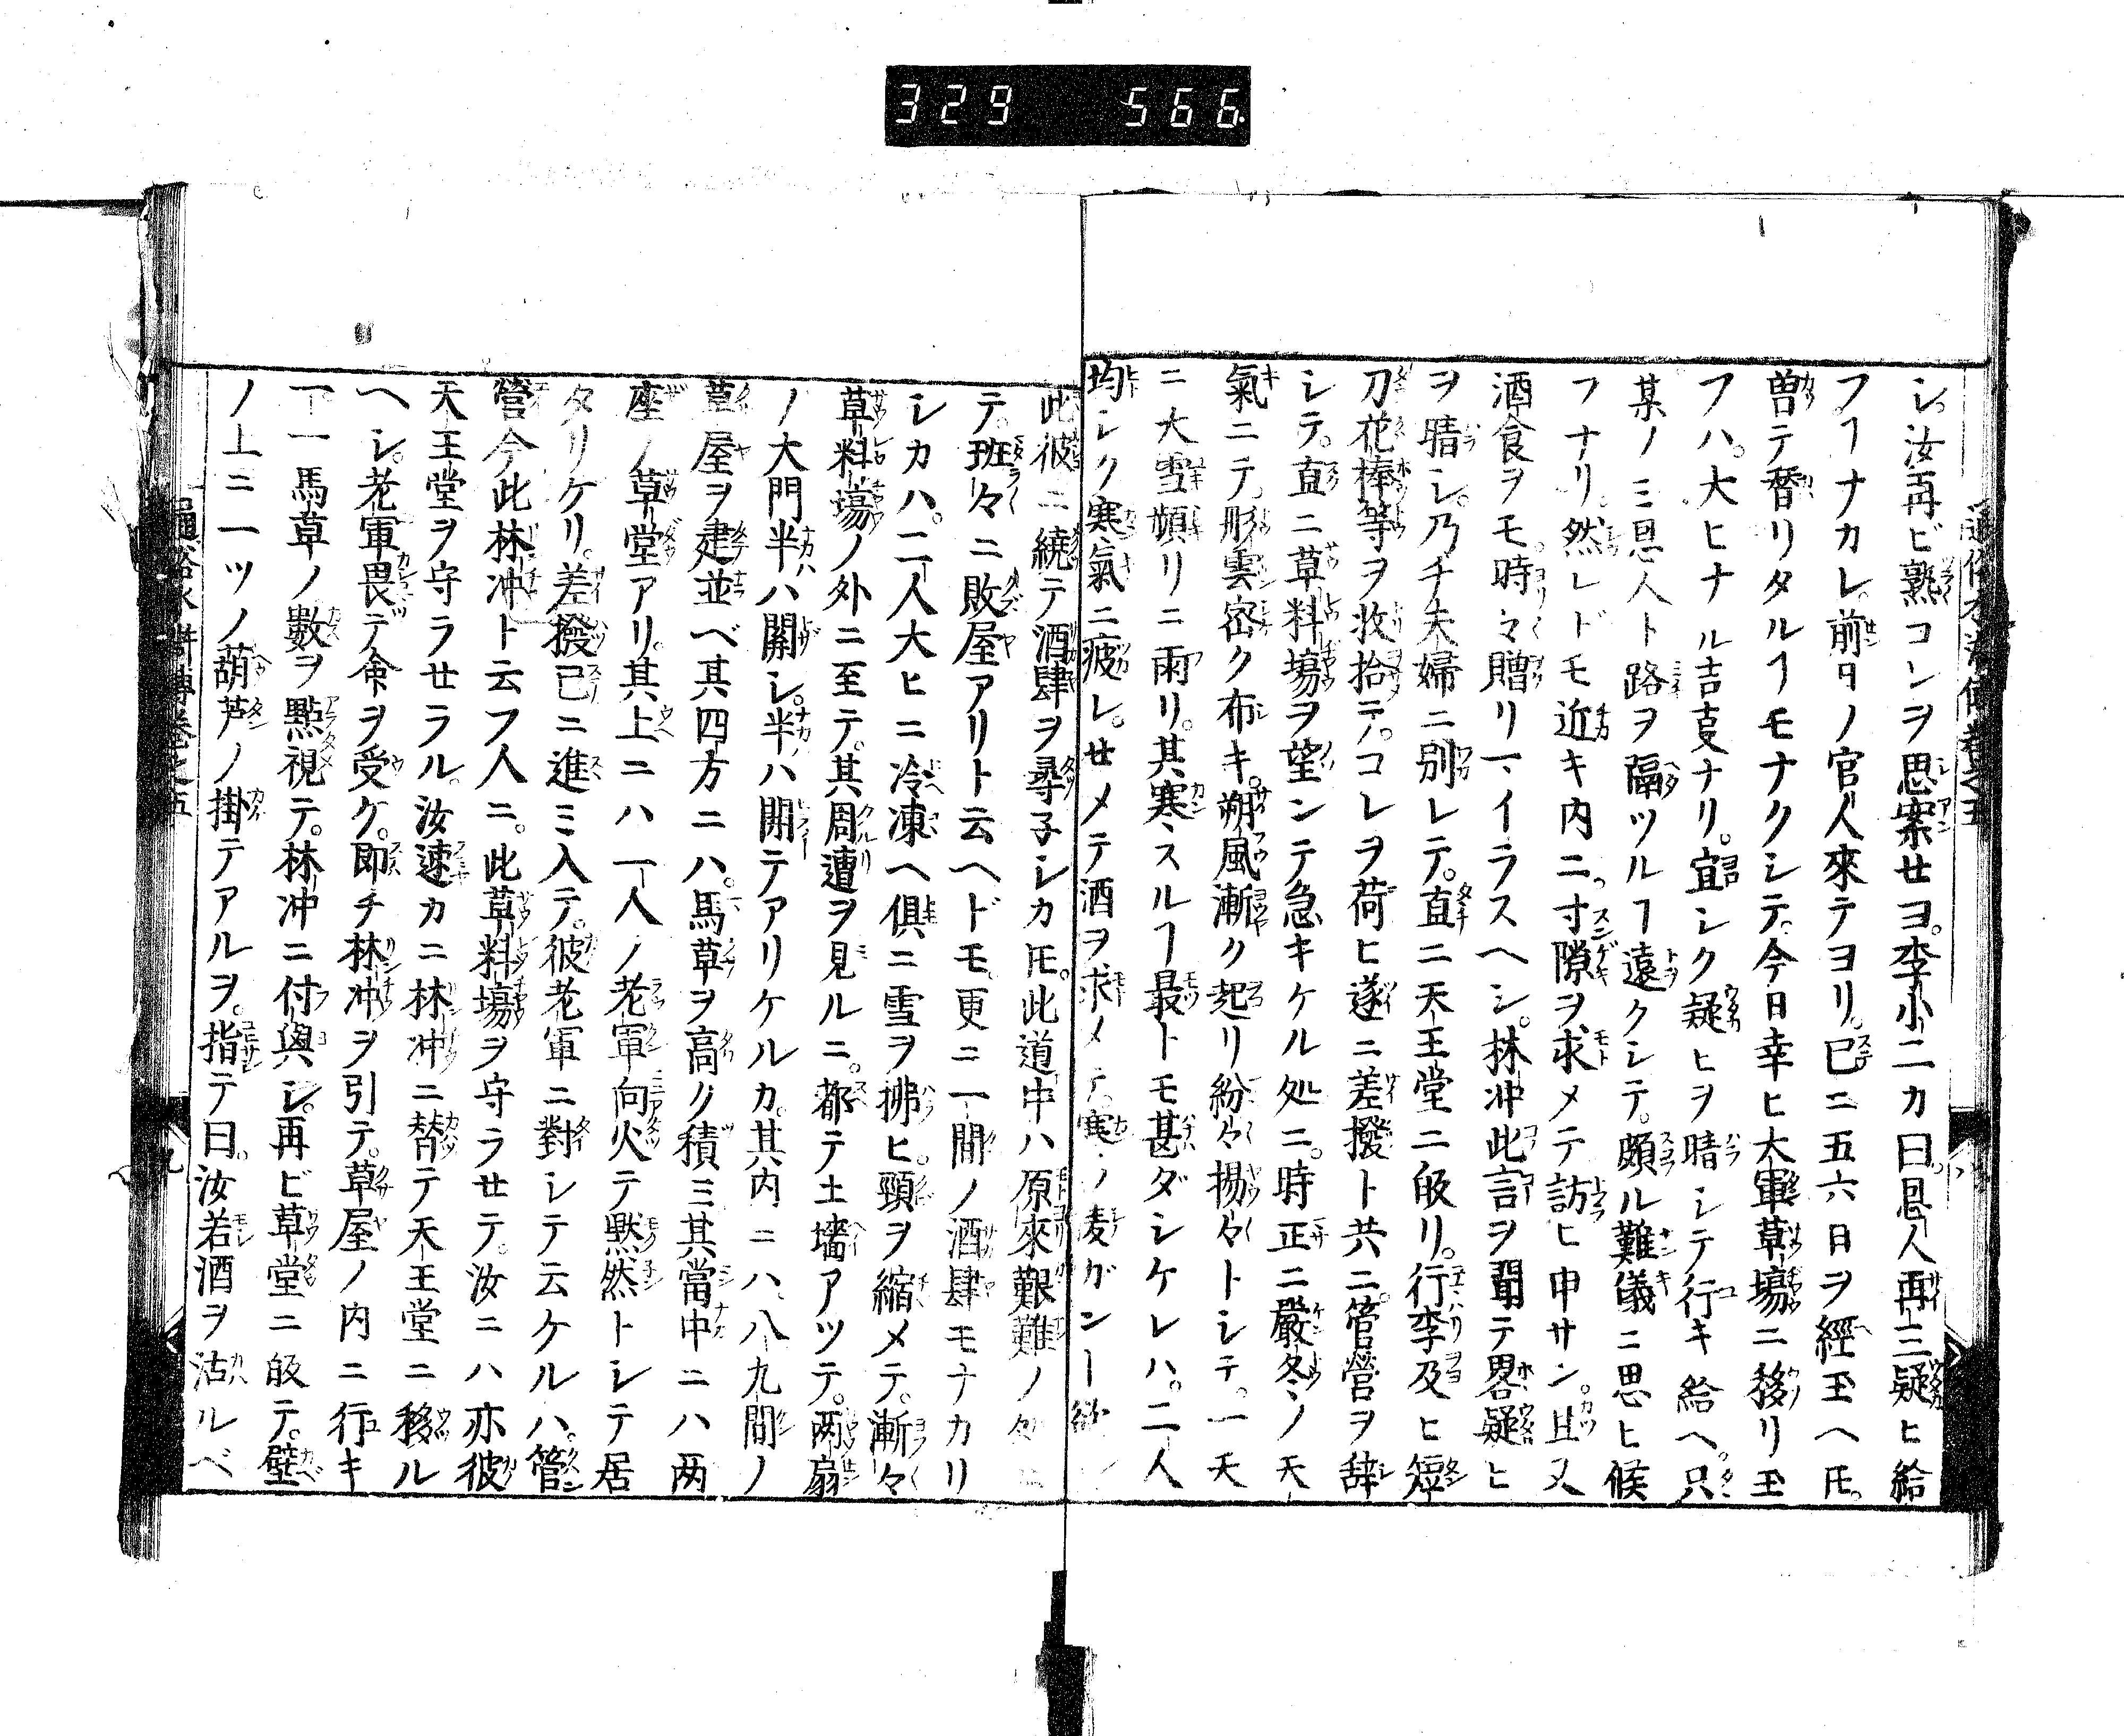 329 566
シ。汝再ビ熟コンヲ思案せヨ。李小二カ曰。恩人再三疑ヒ給
フヿナカレ。前日ノ官人來テヨリ。已ニ五六日ヲ經玉ヘ𪜈。
曽テ替リタルヿモナクシテ。今日幸ヒ大軍草塲ニ移リ玉
フハ。大ヒナル吉叓ナリ。宜シク疑ヒヲ晴シテ行キ給ヘ。只
某ノミ恩人ト路ヲ隔ツルヿ遠クシテ。頗ル難儀ニ思ヒ候
フナリ。然レドモ近キ内ニ。寸隙ヲ求メテ訪ヒ申サン。且又
酒食ヲモ時々贈リマイラスヘシ。林冲此言ヲ聞テ畧疑ヒ
ヲ晴シ。乃チ夫婦ニ別レテ。直ニ天王堂ニ皈リ。行李及ヒ短
刀花棒等ヲ收拾テ。コレヲ荷ヒ遂ニ差撥ト共ニ。管営ヲ辞
シテ。直ニ草料塲ヲ望ンテ急キケル処ニ。時正ニ嚴冬ノ天
氣ニテ。彤雲密ク布キ。朔風漸ク起リ紛々揚々トシテ。一天
ニ大雪頻リニ雨リ。其寒スルヿ最トモ甚ダシケレハ。二人
均シク寒氣ニ疲レ。せメテ酒ヲ求メテ。寒ノ凌ガンヿ
此彼ニ繞テ酒肆ヲ尋子シカ𪜈。此道中ハ原來艱難ノ
テ。班々ニ敗屋アリト云ヘドモ。更ニ一間ノ酒肆モナカリ
シカハ。二人大ヒニ冷凍ヘ俱ニ雪ヲ拂ヒ。頸ヲ縮メテ。漸々
草料塲ノ外ニ至テ。其周遭ヲ見ルニ。都テ土墻アツテ。两扇
ノ大門半ハ關シ。半ハ開テアリケルカ。其内ニハ。八九間ノ
草屋ヲ建並ベ其四方ニハ。馬草ヲ高ク積ミ其當中ニハ两
座ノ草堂アリ。其上ニハ一人ノ老軍向火テ默然トシテ居
タリケリ。差撥已ニ進ミ入テ。彼老軍ニ對シテ云ケルハ。管
營今此林冲ト云フ人ニ。此草料塲ヲ守ラせテ。汝ニハ亦彼
天王堂ヲ守ラせラル。汝速カニ林冲ニ替テ天王堂ニ移ル
ヘシ。老軍畏テ命ヲ受ケ。即チ林冲ヲ引テ。草屋ノ内ニ行キ
一一馬草ノ數ヲ點視テ。林冲ニ付與シ。再ビ草堂ニ皈テ。壁
ノ上ニ一ツノ葫芦ノ掛テアルヲ。指テ曰。汝若酒ヲ沽ルベ
通俗水滸傳卷之五
九